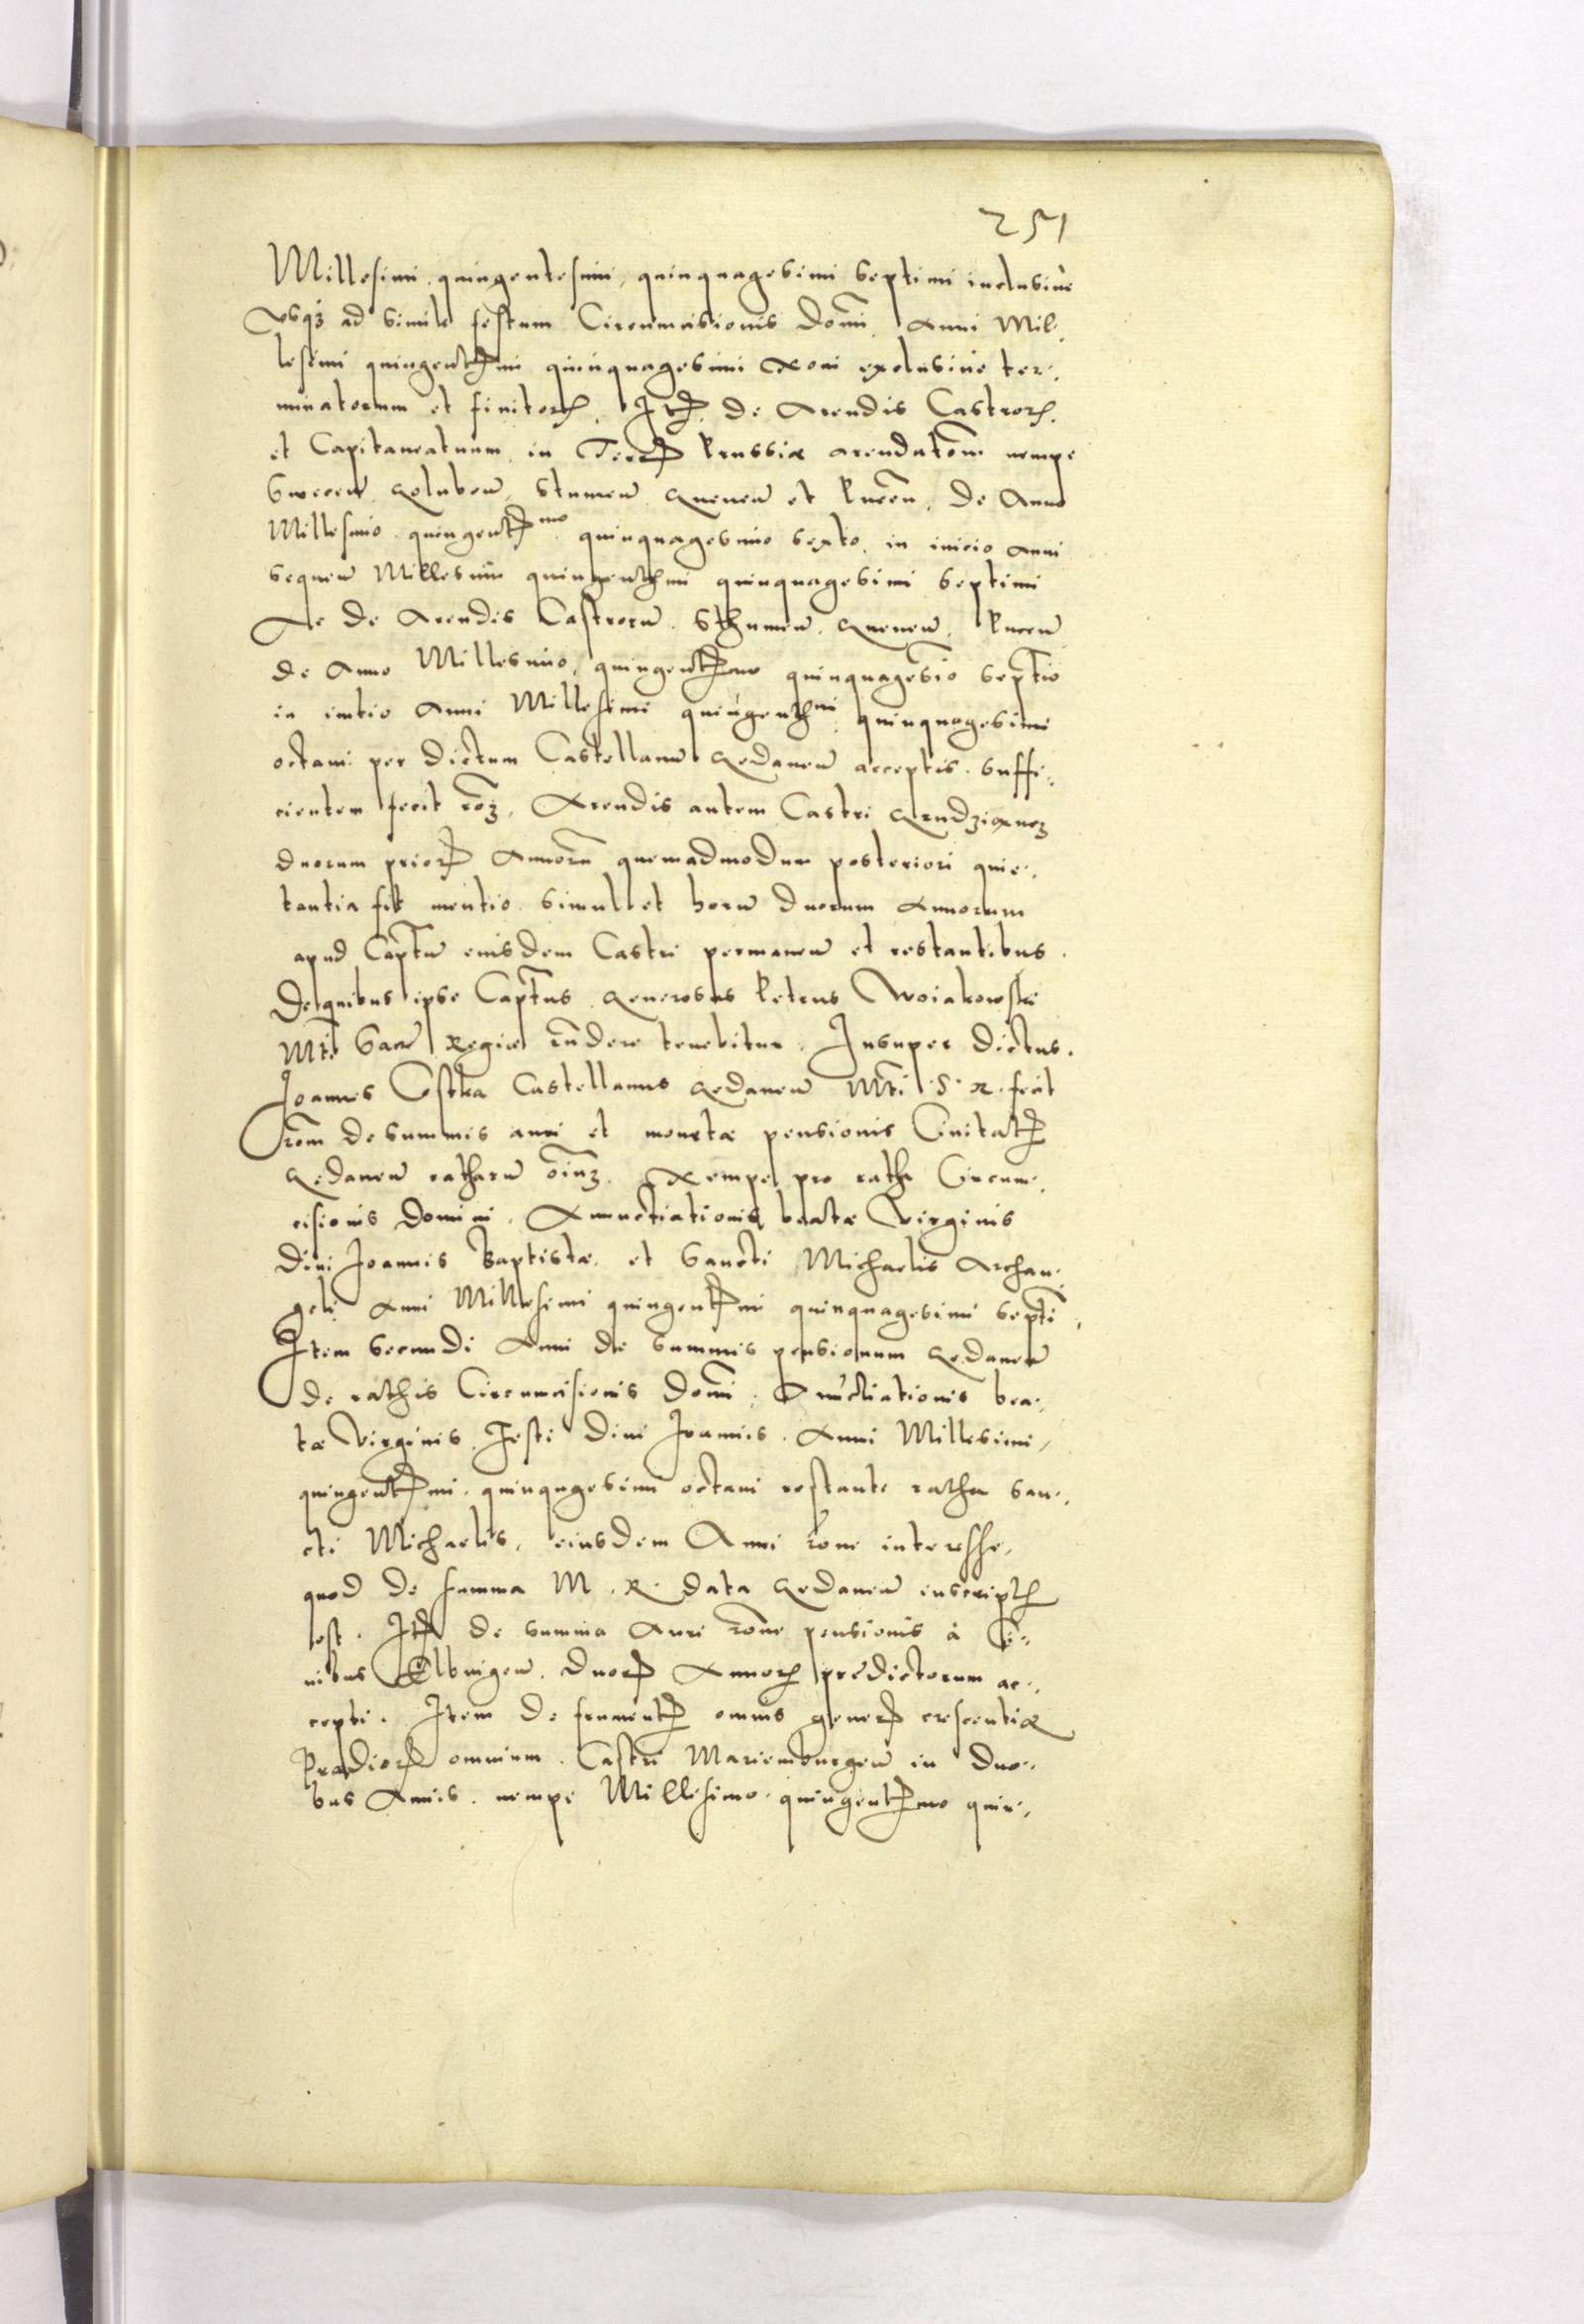 251
Millesimi quingentesimi, quinquagesimi septimi inclusive
Usq3 ad simile festum Circumcisionis Domī. Anni Mil-,
lesimi quingentesimi quinquagesimi Noni exclusive ter-,
minatorum et finitorꝝ. Itꝫ de Arendis Castrorꝝ.
et Capitaneatuum in Terꝭ Prussiæ arendatōni nempe
Swecen̄ Goluben̄ Stumen̄ Gneuen̄ et Pucen̄, de Anno
Millesimo quingentꝭmo quinquagesimo sexto, in inicio anni
sequen̄ Millesimi quingentꝭmi quinquagesimi septimi
Ac de Arendis Castrorū. Sthumen̄. Gneuen̄. Pucen̄
de Anno Millesimo, quingentꝭmo quinquagesīo septīo
in initio Anni Millesimi quingentꝭmi quinquagesimi
octaui per dictum Castellanū Gedanen̄ acceptis. suffi-,
cientem fecit rōꝫ. Arendis autem Castri Grudziąncꝫ
duorum priorꝭ Annorū quemadmodum posteriori quie-,
tantia fit mentio simul et horū duorum Annorum
apud Capt̄n̄ eiusdem Castri permanen̄ et restantibus.
De quibus ipse Capt̄us Generosus Petrus Woiakowski
Mtī Sacr̄ Regiæ rn̄dere tenebitur. Insuper dictus.
Joannes Costka Castellanus Gedanen̄ Mtī S. R. fecit
rōm de summis auri et monetæ pensionis Ciuitatꝭ
Gedanen̄ ratharū oīuꝫ. Nempe pro ratha Circum-,
cisionis Domini. Annuntiationis beatæ Virginis
Diui Joannis Baptistæ. et Sancti Michaelis Archan-
geli Anni Millesimi quingentꝭmi quinquagesimi septī.
Item secundi Anni de summis pensionum Gedanen̄
de rathis Circumcisionis Domī. Anūctiationis bea-,
tæ Virginis. Festi Diui Joannis. Anni Millesimi,
quingentꝭmi. quinquagesimi octaui restante ratha San-,
cti Michaelis. eiusdem Anni rōne interesse,
quod de summa M. R. data Gedanen̄ inscriptꝭ
est. Itꝫ de summa Auri rōne pensionis à Ci-,
uibus Elbingen̄. duorꝭ Annorꝝ prędictorum ac-,
cepti. Item de frumentꝭ omnis generꝭ crescentiæ
Prædiorꝭ omnium. Castri Marienburgen̄ in duo-,
bus Annis. nempe Millesimo quingentꝭmo quin-,